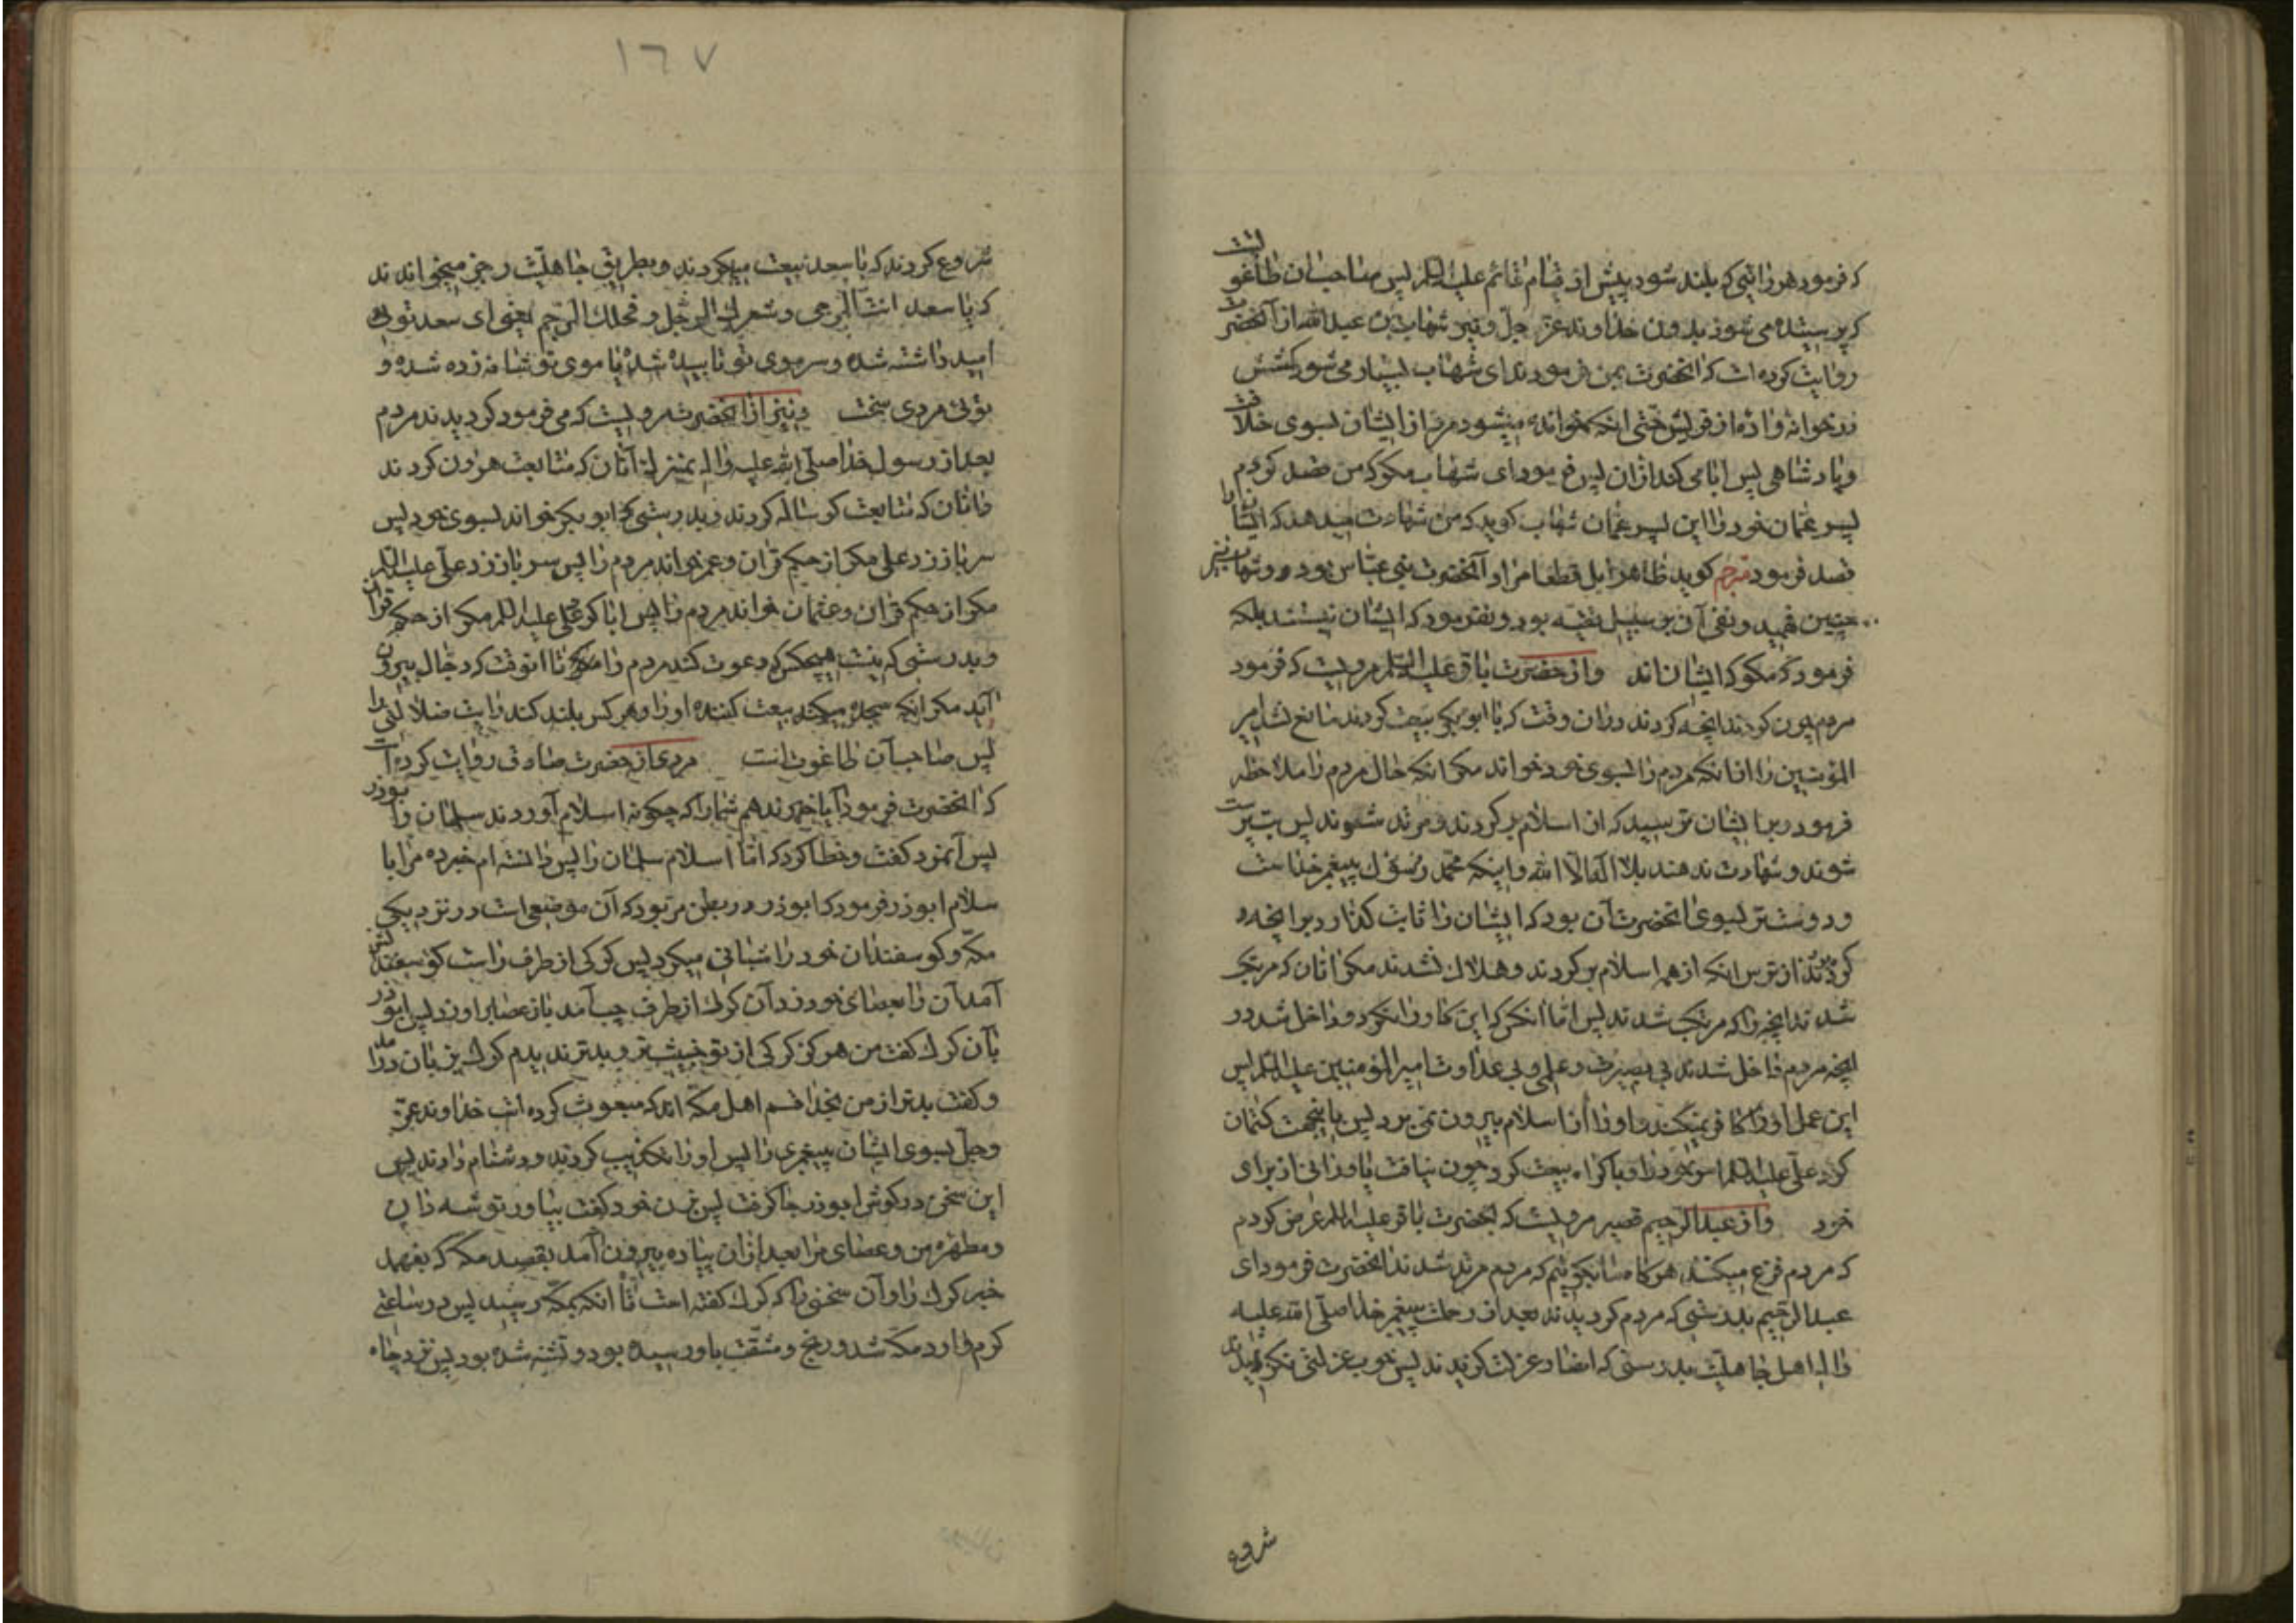 که فرمود هر رایتی که بلند شود پیش از قیام قائم علیه السلم پس صاحب ان طاغوتست
که پرستیده می شود بدون خداوند عز و جل و نیز شهاب بن عبدالله از آنحضرت
روایت کرده است که انحضرت بمن فرمودند ای شهاب بسیار می شود کشش
در خوانواده از قریش حتی انکه خوانده میشود مرد از ایشان بسوی خلافت
و پادشاهی پس ابا می کند ازان پس فرمود ای شهاب مکو که من قصد کردم
پسر عمان خود را این پسر عمان شهاب کوید که من شهادت میدهم که ایشان را
قصد فرمود مترجم کوید ظاهرا بل قطعا مراد آنحضرت بنی عباس بوده و شهاب نیز
چنین فهمید و نفی آن بر سبیل تقیه بود و نفرمود که ایشان نیستند بلکه
فرمود که مکو که ایشان اند و از حضرت باقر علیه السلم مرویست که فرمود
مردم چون کردند انچه کردند دران وقت که با ابو بکر بیعت کردند مانع نشد امیر
المؤمنین را از انکه مردم را بسوی خود خواند مکر انکه حال مردم را ملاحظه
فرمود و بر ایشان ترسید که از اسلام بر کردند و مرتد شوند پس بت پرست
شوند و شهادت ندهند بلا اله الا الله و اینکه محمد رسول پیغمبر خداست
و دوستتر بسوی انحضرت آن بود که ایشان را ثابت کذارد بر انچه
کردند از ترس انکه از همه اسلام بر کردند و هلاک شدند مکر انان که مرتکب
شدند انچه را که مرتکب شدند پس اما انکس که این کار را نکرد و داخل شد در
انچه مردم داخل شدند بی بصیرت و علمی و بی عداوت امیر المؤمنین علیه السلم پس
این عمل او را کافر نمیکند و او را از اسلام بیرون نمی برد پس باینجهت کتمان
کرد علی علیه السلم امر خود را و باکراه بیعت کرد چون نیافت یاورانی از برای
خود و از عبدالرحیم قصیر مرویست که بحضرت باقر علیه السلم عرض کردم
که مردم فزع میکنند هرکاه ما بکوئیم که مردم مرتد شدند انحضرت فرمود ای
عبدالرحیم بدرستی که مردم کردیدند بعد از رحلت پیغمبر خدا صلی الله علیه
و اله اهل جاهلیت بدرستی که انصار عزلت کزیدند پس خوب عزلتی نکزیدند
شروع
١٦٧
شروع کردند که با سعد بیعت میکردند و بطریق جاهلیت رجز میخواندند
که یا سعد انت المرجی و شعرک المرجل و فحلک المرجم یعنی ای سعد توئی
امید داشته شده و سر موی تو تابیده شده یا موی تو شانه زده شده و
توئی مردی سخت و نیز از انحضرت مرویست که می فرمود کردیدند مردم
بعد از رسول خدا صلی الله علیه و اله بمنزله آنان که متابعت هرون کردند
و انان که متابعت کوساله کردند و بدرستی که ابو بکر خواند بسوی خود پس
سر باز زد علی مکر از حکم قران و عمر خواند مردم را پس سر باز زد علی علیه السلم
مکر از حکم قران و عثمان خواند مردم را پس ابا کرد علی علیه السلم مکر از حکم قران
و بدرستی که نیست هیچکس که دعوت کند مردم را تا انوقت که دجال بیرون
آید مکر انکه بیعت کننده او را و هر کس بلند کند رایت ضلالتی را
پس صاحب آن طاغوت است مردی از حضرت صادق روایت کرده است
که انحضرت فرمود آیا خبر ندهم شما را که چکونه اسلام آوردند سلمان و ابوذر
پس آنمرد کفت و خطا کرد که اما اسلام سلمان را پس دانسته ام خبر ده مرا با
سلام ابوذر فرمود که ابوذر در بطن مر بود که آن موضعی است در نزدیکی
مکه و کوسفندان خود را شبانی میکرد پس کرکی از طرف راست کوسفندانش
آمد آن را بعصای خود زد آن کرک از طرف چپ آمد باز عصا بر او زد پس ابوذر
بآن کرک کفت من هرکز کرکی از تو خبیث تر و بدتر ندیدم کرک بزبان درامد
و کفت بدتر از من بخدا قسم اهل مکه اند که مبعوث کرده است خداوند عز
و جل بسوی ایشان پیغمبری را پس او را تکذیب کردند و دشنام دادند پس
این سخن در کوش ابوذر جا کرفت پس بزن خود کفت بیاور توشه دان
و مطهره من و عصای مرا بعد ازان پیاده بیرون آمد بقصد مکه که بفهمد
خبر کرک را و آن سخنی را که کرک کفته است تا انکه بمکه رسید پس در ساعتی
کرم وارد مکه شد و رنج و مشقت باو رسیده بود و تشنه شده بود پس نزد چاه